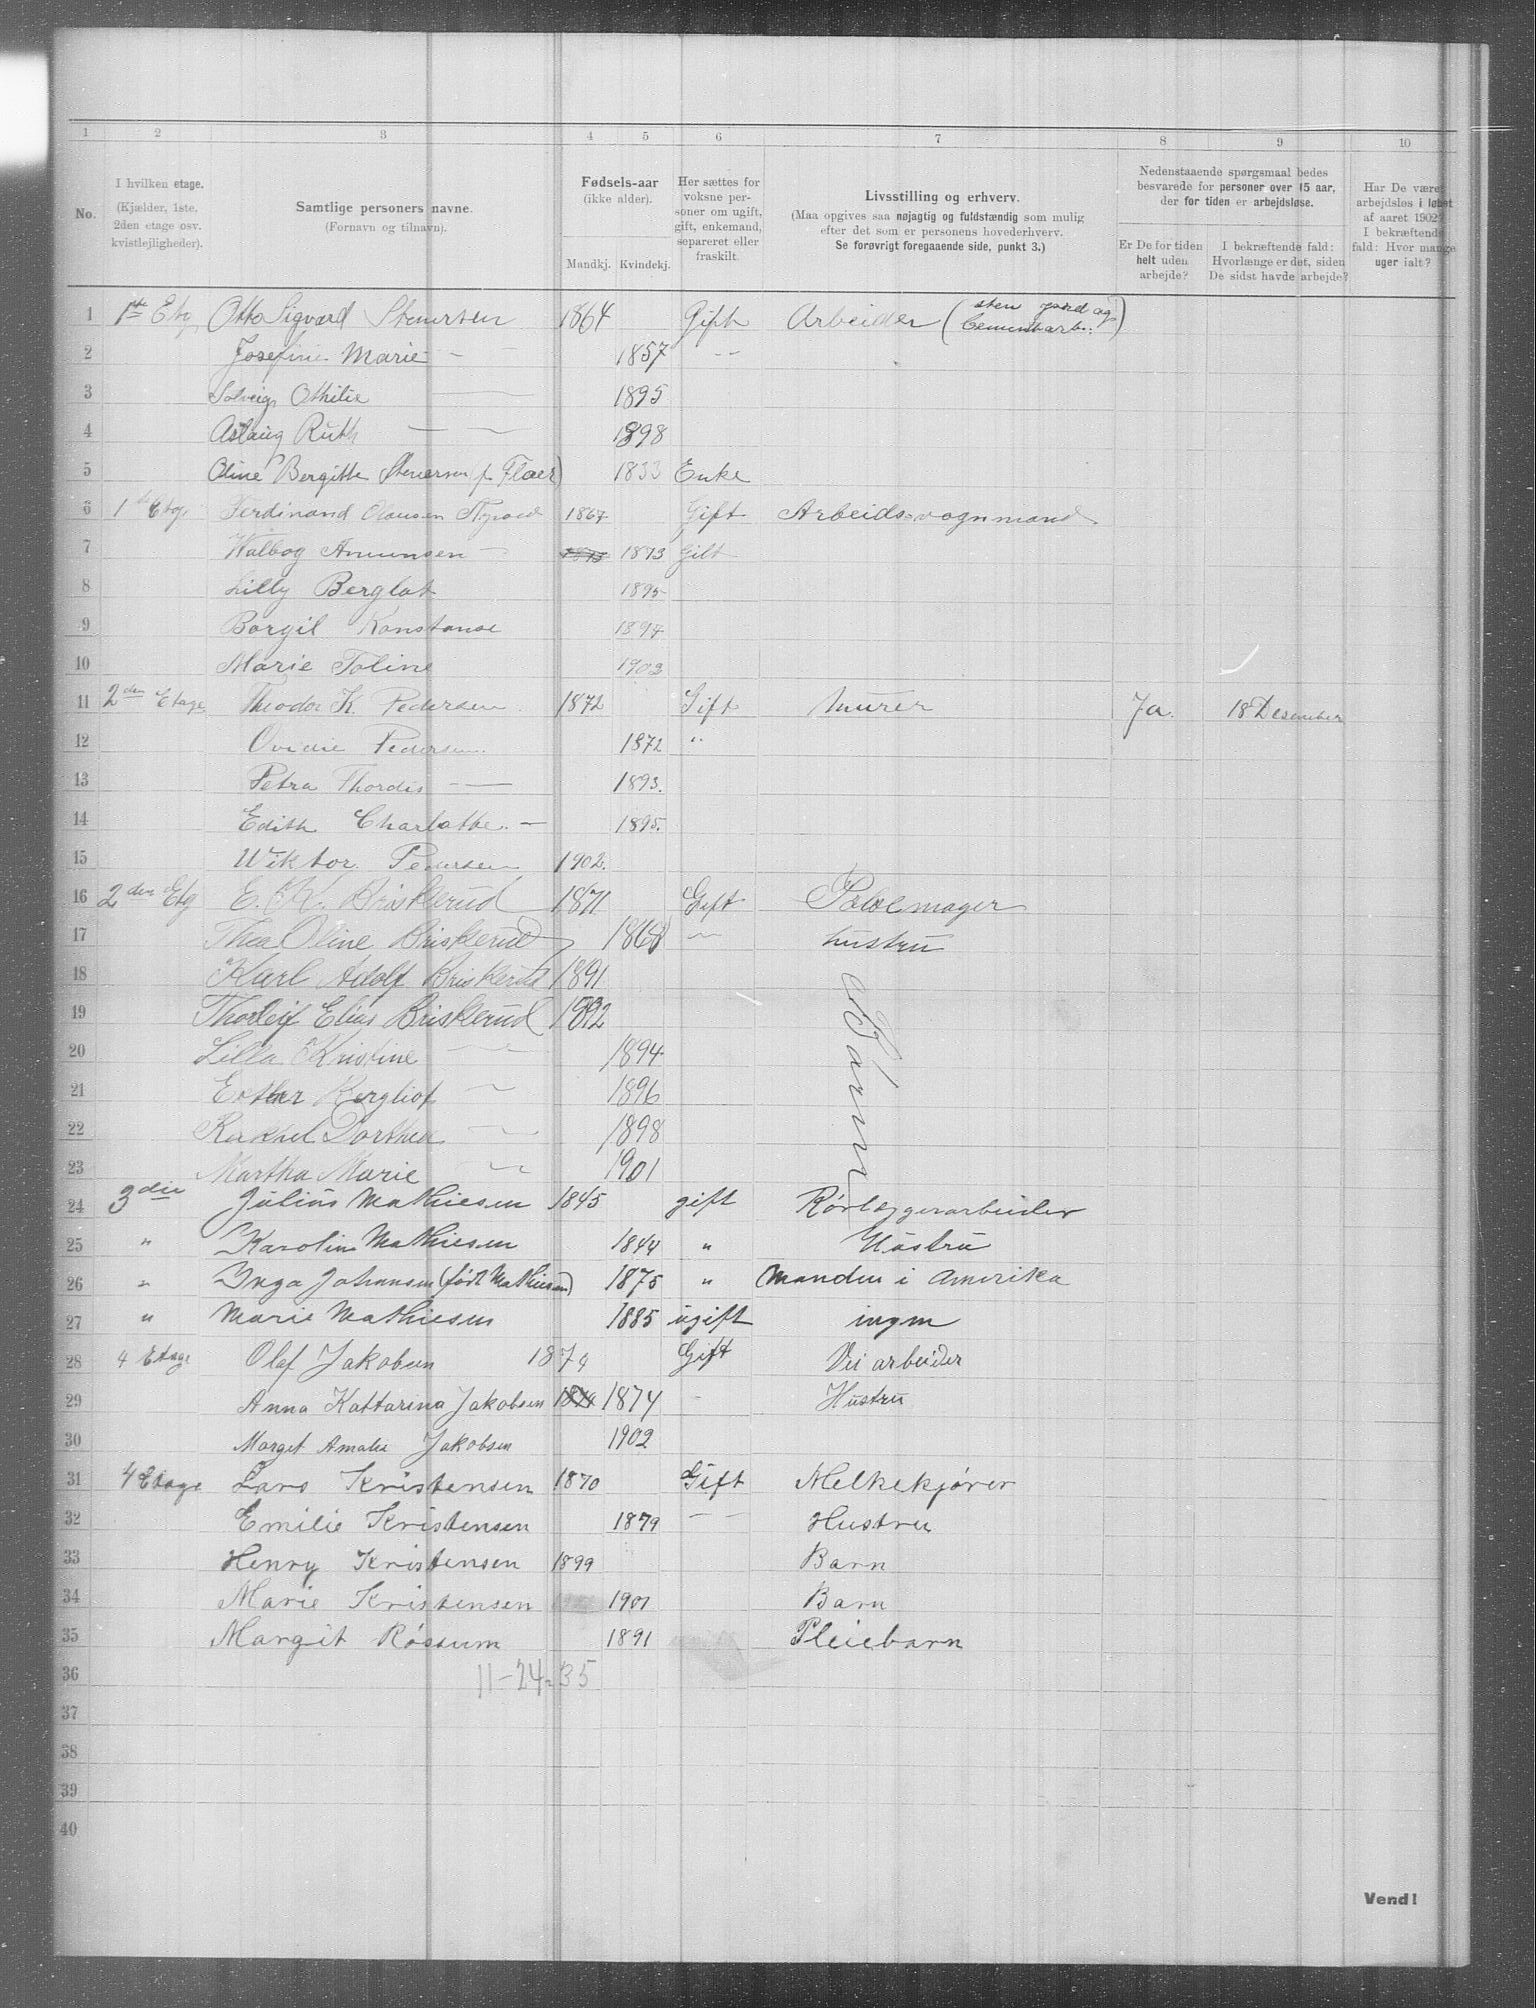 1 2 3 4 5 6 7 8 9 10
No.
I hvilken etage.
(Kjælder, 1ste,
2den etage osv.
kvistlejligheder).
Samtlige personers navne.
(Fornavn og tilnavn).
Fødsels-aar
(ikke alder).
Mandkj. Kvindekj.
Her sættes for
voksne per-
soner om ugift,
gift, enkemand,
separeret eller
fraskilt.
Livsstilling og erhverv.
(Maa opgives saa nøjagtig og fuldstændig som mulig
efter det som er personens hovederhverv.
Se forøvrigt foregaaende side, punkt 3.)
Nedenstaaende spørgsmaal bedes
besvarede for personer over 15 aar,
der for tiden er arbejdsløse.
Er De for tiden
helt uden
arbejde?
I bekræftende fald:
Hvorlænge er det, siden
De sidst havde arbejde?
Har De være
arbejdsløs i løbet
af aaret 1902?
I bekræftende
fald: Hvor mange
uger ialt?
1 1ste Etg Otto Sigvard Stenersen 1864 Gift Arbeider (sten jord og Cementarb.)
2 Josefine Marie — — 1857 —
3 Solveig Othilie — 1895
4 Aslaug Ruth — — 1898
5 Oline Bergitte Stenersen f. Floer) 1833 Enke
6 1 Etg. Ferdinand Clausen 1867 Gift Arbeids-vognmand
7 Walbog Amunsen — 1873 1873 Gift
8 Lilly Berglot 1895
9 Borgil Konstanse 1897
10 Marie Toline 1902
11 2den Etage Theodor K. Pedersen 1872 Gift Murer Ja. 18 Desember
12 Ovidie Pedersen 1872 "
13 Petra Thordis — 1893.
14 Edith Charlotte. — 1895.
15 Wiktor. Pedersen 1902.
16 2den Etg E. K. Briskerud 1871 Gift
17 Thea Oline Briskerud 1868 — Hustru
18 Karl Adolf Briskerud 1891
19 Thorleif Elias Briskerud 1892
20 Lilla Kristine — 1894
21 Esther Bergliot — 1896
22 Rakhel Dorthea — 1898
23 Martha Marie — 1901
Børn
24 3die Julius Mathiesen 1845 gift Rørlæggerarbeider
25 " Karolin Mathiesen 1844 " Hustru
26 " Inga Johansen (født Mathiesen) 1875 " (Manden i Amerika
27 " Marie Mathiesen 1885 ugift ingen
28 4 Etage Olaf Jakobsen 1874 Gift Vei arbeider
29 Anna Kattarina Jakobsen 1874 1874 - Hustru
30 Margit Amalie Jakobsen 1902
31 4 Etage Lars Kristensen 1870 Gift Melkekjører
32 Emilie Kristensen 1879 — — Hustru
33 Henry Kristensen 1899 Barn
34 Marie Kristensen 1901 Barn
35 Margit Røssum 1891 Pleiebarn
36 11-24-35
37
38
39
40
Vend!